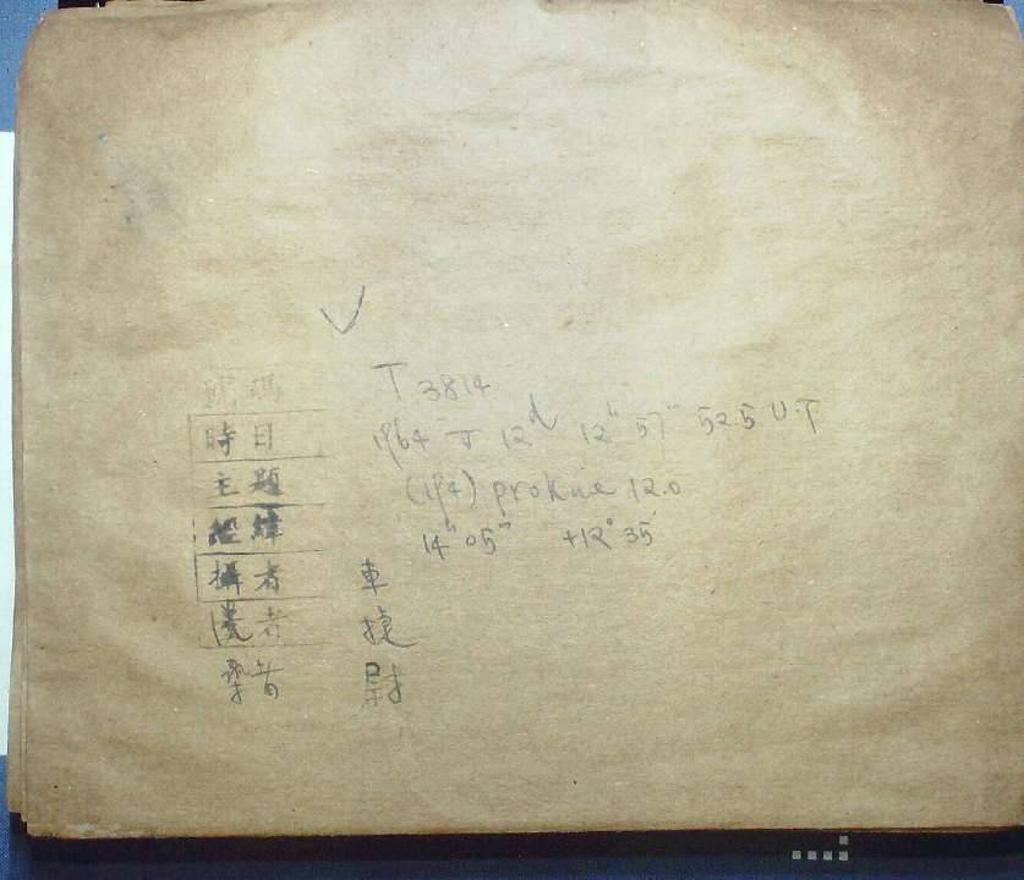 號碼 T 3814
時日 1964 J 12ᵈ 12ʰ 57ᵐ 52.5 U.T
主題 (194) prokne 12.0
經緯 14ʰ 05ᵐ +12° 35'
攝者 車
者 捷
者 尉